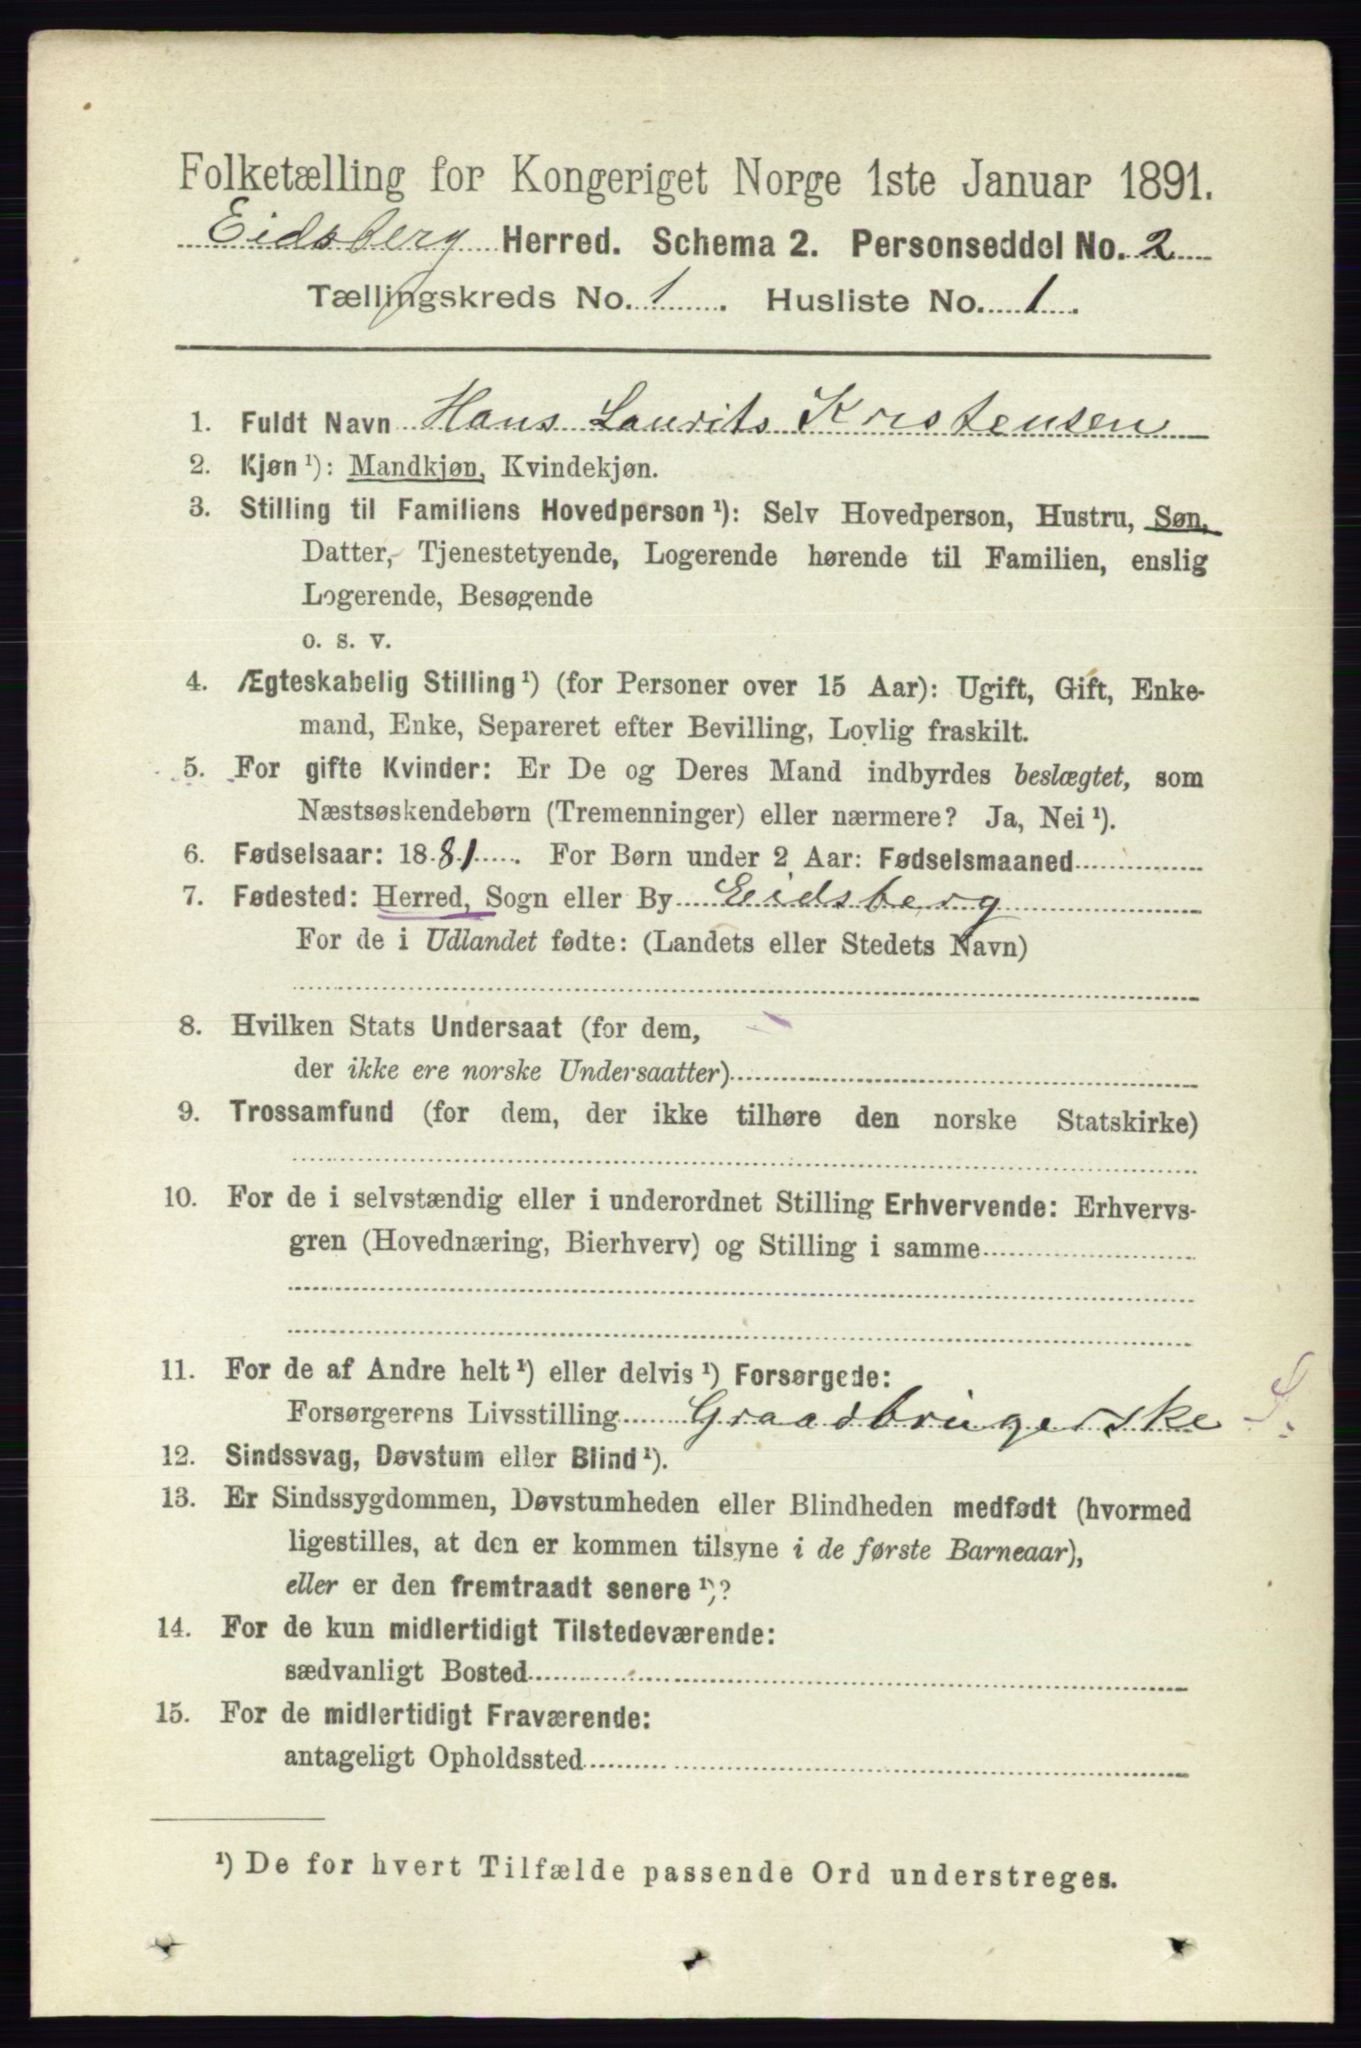 Folketælling for Kongeriget Norge 1ste Januar 1891.
Eidsberg Herred. Schema 2. Personseddel No. 2
Tællingskreds No. 1. Husliste No. 1.
1. Fuldt Navn Hans Laurits Kristensen
2. Kjøn ¹): Mandkjøn, Kvindekjøn.
3. Stilling til Familiens Hovedperson ¹): Selv Hovedperson, Hustru, Søn,
Datter, Tjenestetyende, Logerende hørende til Familien, enslig
Logerende, Besøgende
o. s. v.
4. Ægteskabelig Stilling ¹) (for Personer over 15 Aar): Ugift, Gift, Enke-
mand, Enke, Separeret efter Bevilling, Lovlig fraskilt.
5. For gifte Kvinder: Er De og Deres Mand indbyrdes beslægtet, som
Næstsøskendebørn (Tremenninger) eller nærmere? Ja, Nei ¹).
6. Fødselsaar: 1881. For Børn under 2 Aar: Fødselsmaaned
7. Fødested: Herred, Sogn eller By Eidsberg
For de i Udlandet fødte: (Landets eller Stedets Navn)
8. Hvilken Stats Undersaat (for dem,
der ikke ere norske Undersaatter)
9. Trossamfund (for dem, der ikke tilhøre den norske Statskirke)
10. For de i selvstændig eller i underordnet Stilling Erhvervende: Erhvervs-
gren (Hovednæring, Bierhverv) og Stilling i samme
11. For de af Andre helt ¹) eller delvis ¹) Forsørgede:
Forsørgerens Livsstilling Graadbrugerske S.
12. Sindssvag, Døvstum eller Blind ¹).
13. Er Sindssygdommen, Døvstumheden eller Blindheden medfødt (hvormed
ligestilles, at den er kommen tilsyne i de første Barneaar),
eller er den fremtraadt senere ¹)?
14. For de kun midlertidigt Tilstedeværende:
sædvanligt Bosted
15. For de midlertidigt Fraværende:
antageligt Opholdssted
¹) De for hvert Tilfælde passende Ord understreges.